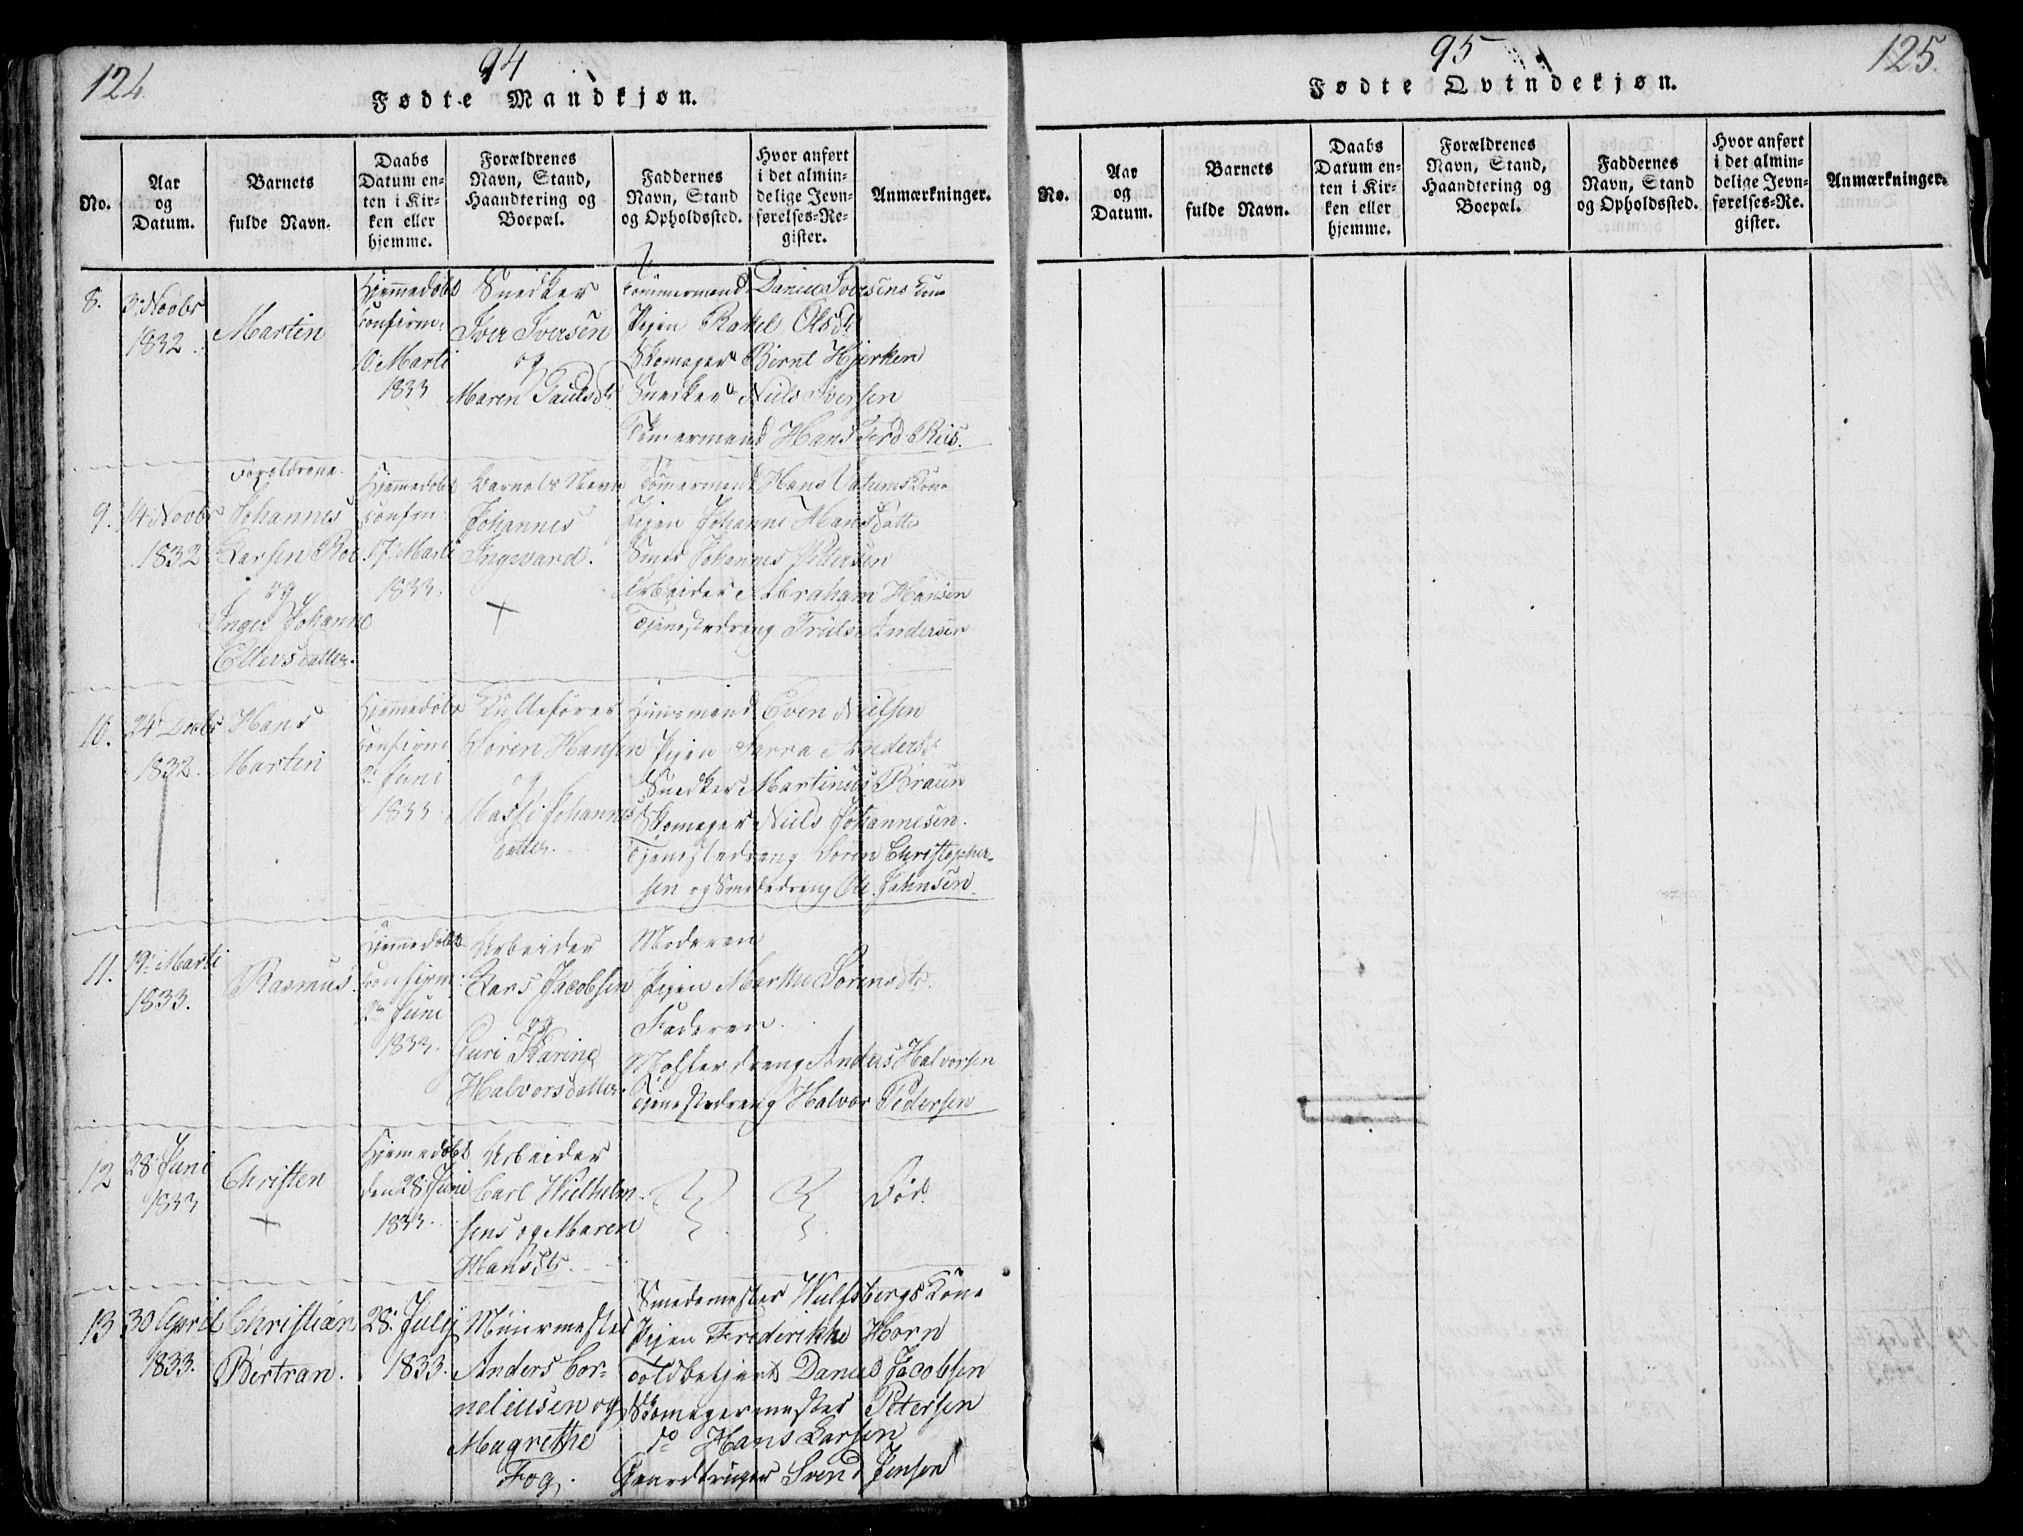 124.
94
Fødte Mandkjøn.
No.
Aar og Datum.
Barnets fulde Navn.
Daabs Datum enten i Kirken eller hjemme.
Forældrenes Navn, Stand, Haandtering og Boepæl.
Faddernes Navn, Stand og Opholdssted.
Hvor anført i det almindelige Jevnførelses-Register.
Anmærkninger.
8.
3. Novbr
1832.
Martin
Hjemmedøbt
confirm:
10. Marti
1833
Snedker
Iver Iversen
og
Maren Paulsdtr
Tømmermand Daniel Iversens Kone
Pigen Rakel Olsdtr
Skomager Bernt Hjerken
Snedker Niels Iversen
Tømermand Hans Ferd. Reis.
9.
14 Novbr
1832
Forældrene
Johannes
Larsen Roe
og
Inger Johanne
Ellevsdatter.
Hjemmedøbt
confirm:
17. Marti
1833.
Barnets Navn
Johannes
Ingvard.
Tømermand Hans Kone
Pigen Johanne Hansdatter
Smed Johannes Pedersen
Arbeider Abraham Hansen
Tjenestedreng Truls Andersen
10.
24 Decbr
1832.
Hans
Martin
Hjemmedøbt
confirm:
2. Juni
1833.
Søren Hansen
og
Massi Johannes
datter.
Huusmand Even Nielsen
Pigen Sarra Andersdtr
Snedker Martinus Braun
Skomager Niels Johannesen.
Tjenestedreng Søren Christopher-
sen og Smededreng Ole Johnsen.
11.
19. Marti
1833.
Rasmus.
Hjemmedøbt
confirm:
2den Juni
1833.
Arbeider
Lars Jacobsen
og
Guri Karine
Halvorsdatter.
Moderen
Pigen Marthe Sørensdtr.
Faderen.
Anders Halvorsen
Tjenestedreng Halvor Pedersen
12
28. Juni
1833
Christen
Hjemmedøbt
den 28. Juni
1833.
Arbeider
Carl Wilhelm-
sens og Maren
Hansdtr.
Død.
13
30 April
1833.
Christian
Bertran.
28. Julij
1833.
Muurmester
Anders Cor-
neliusen og
Magrethe
Fog.
Smedemester Wulfsbergs Kone
Pigen Frederikke Horn
Toldbetjent Daniel Jacobsen
Skomagermester Petersen
do Hans Larsen
Gaardbruger Svend Jensen
95
125.
Fødte Qvindekjøn.
No.
Aar og Datum.
Barnets fulde Navn.
Daabs Datum enten i Kirken eller hjemme.
Forældrenes Navn, Stand, Haandtering og Boepæl.
Faddernes Navn, Stand og Opholdssted.
Hvor anført i det almindelige Jevnførelses-Register.
Anmærkninger.